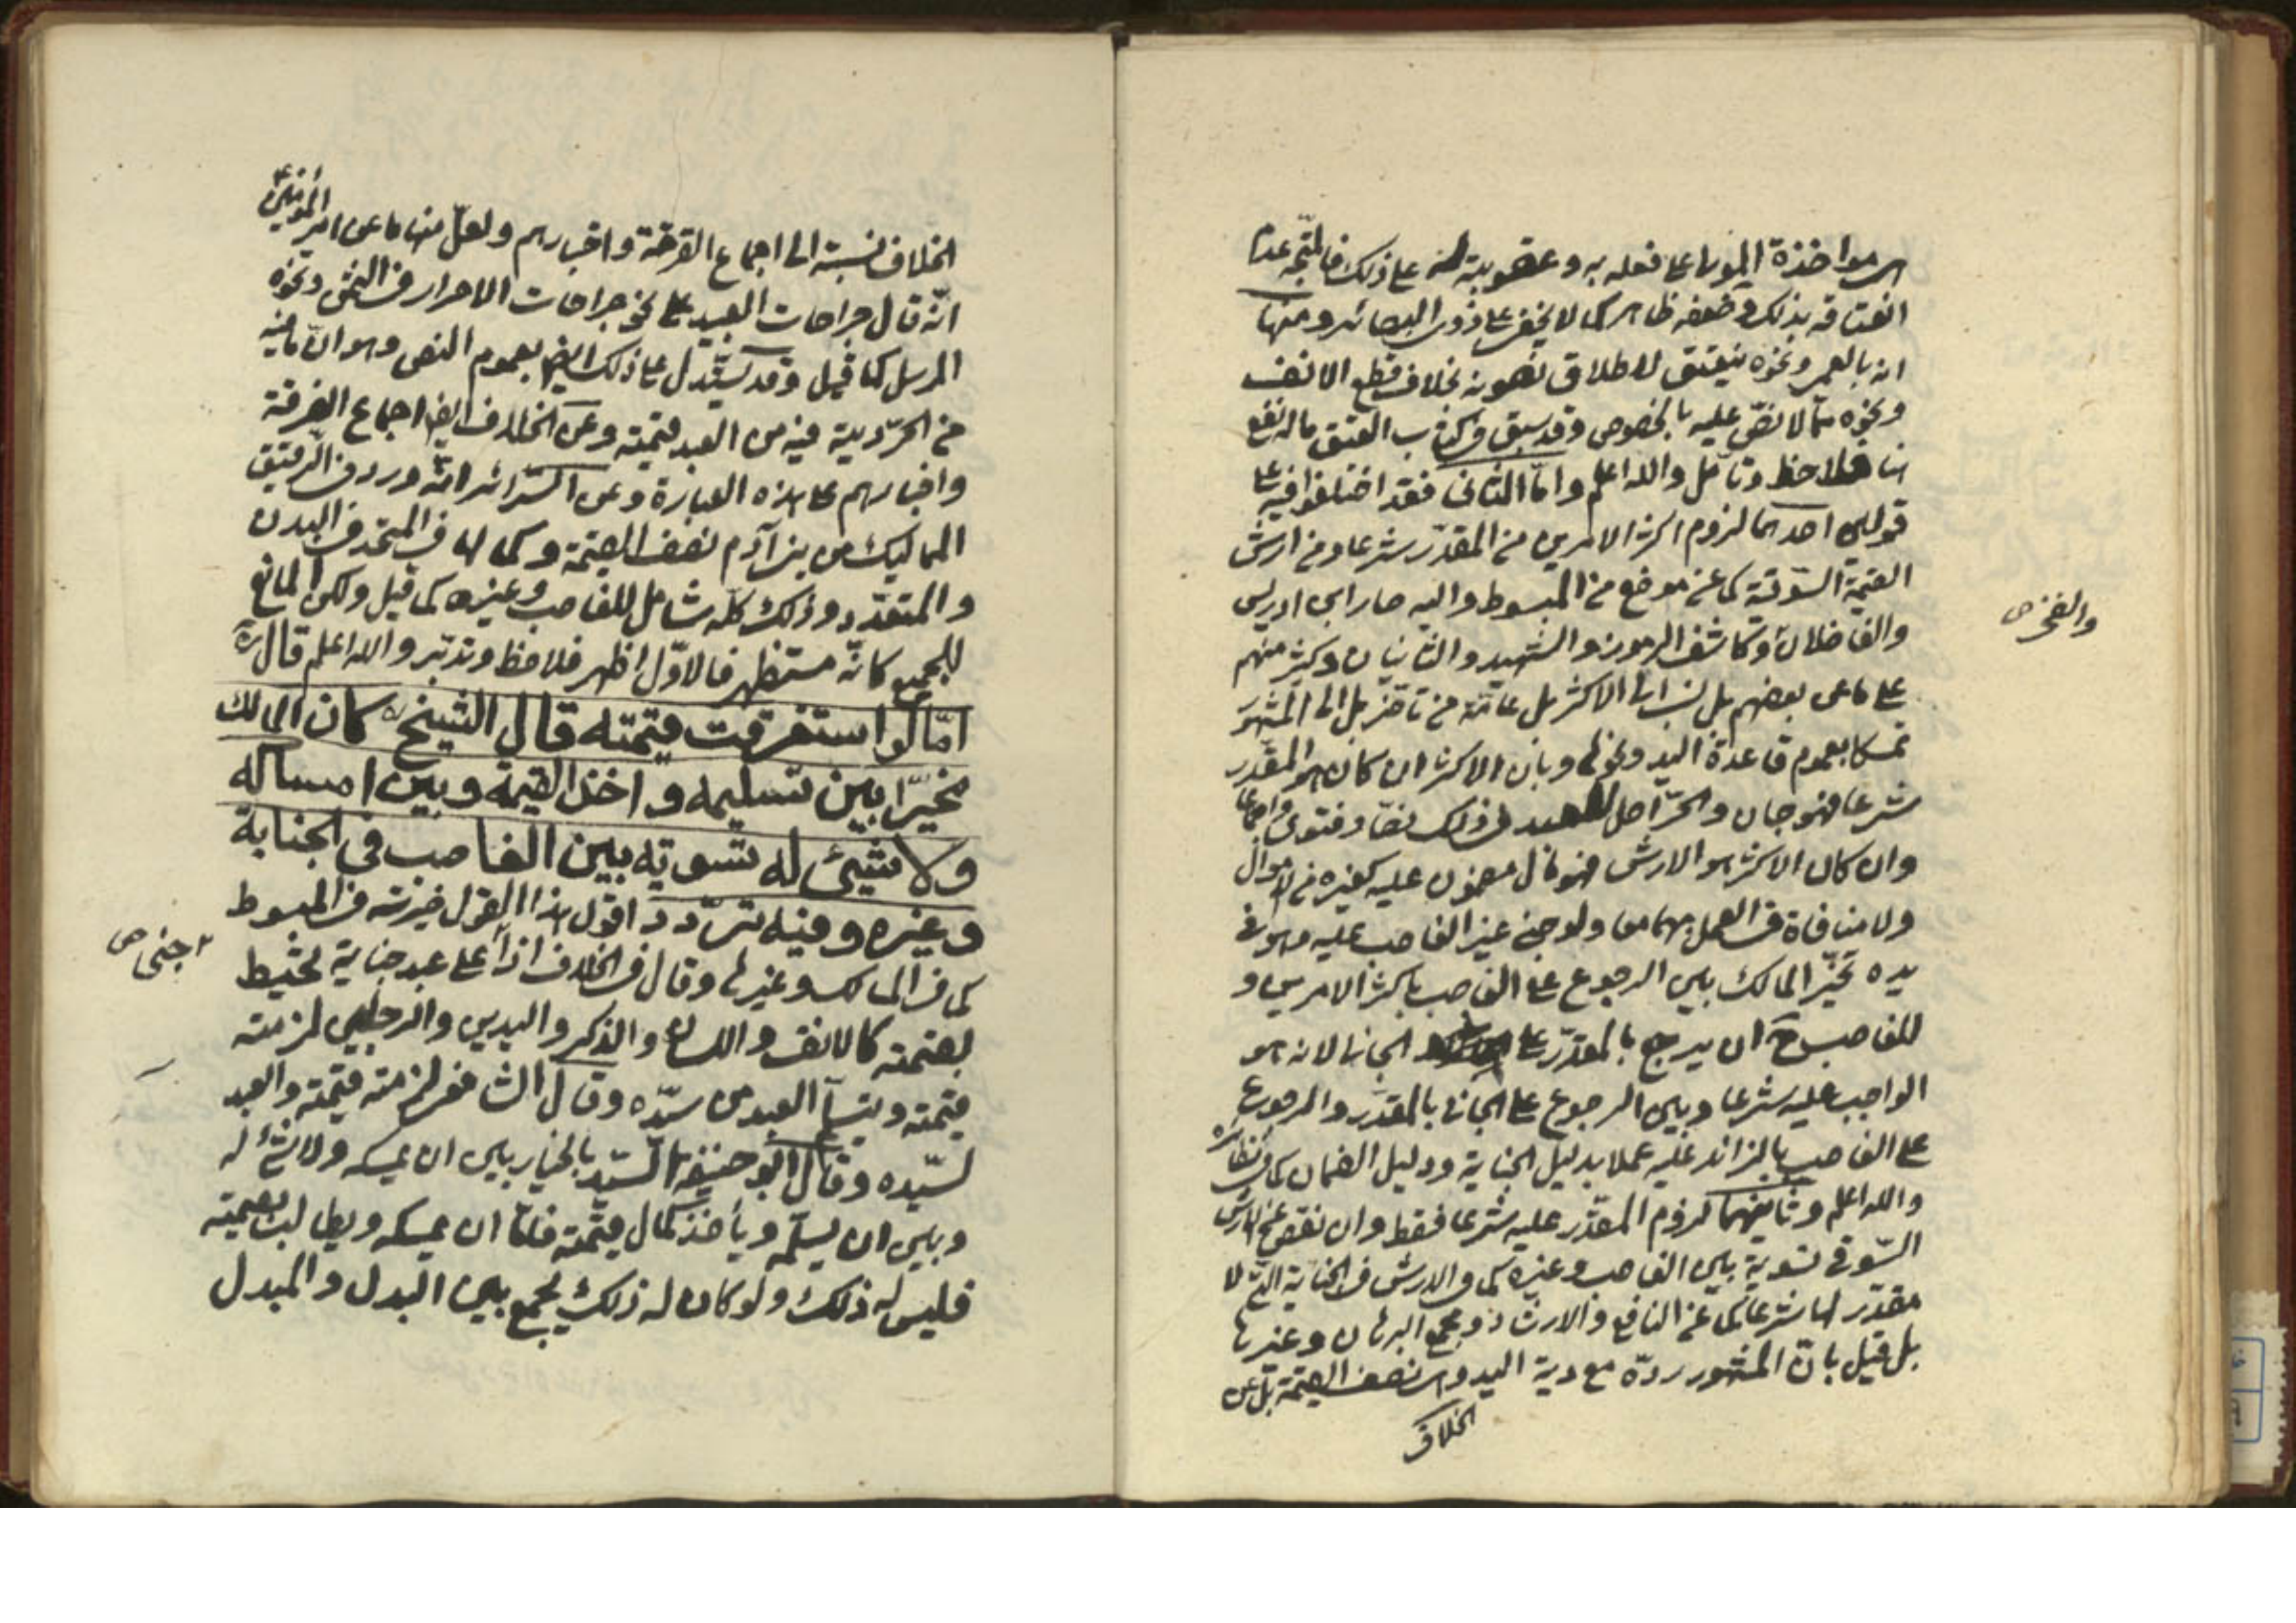 هى مواخذة المولى على فعله به وعقوبته له على ذلك فالمتجه عدم
انعتاقه بذلك وضعفه ظاهر كما لا يخفى على ذوى البصائر ومنها
انه بالعمى ونحوه ينعتق لاطلاق نصوصه بخلاف قطع الانف
ونحوه ممّا لا نصّ عليه بالخصوص وقد سبق فى كتاب العتق ماله نفع
هنا فلاحظ وتأمل والله اعلم وامّا الثانى فقد اختلفوا فيه على
قولين احدهما لزوم اكثر الامرين من المقدّر شرعا ومن ارش
القيمة السّوقيّة كما عن موضع من المبسوط واليه صار ابن ادريس
والفاضلان وكاشف الرموز والشهيد والثانيان وكثير منهم
والفخر ص
على ما عن بعضهم بل نسب الى الاكثر بل عامّة من تأخر بل الى المشهور
تمسكا بعموم قاعدة اليد ونحوها وبان الاكثر ان كان هو المقدّر
شرعا فهو جان والحرّ اصل للعبد فى ذلك نصّا وفتوى واجماعا
وان كان الاكثر هو الارش فهو مال مضمون عليه كغيره من الاموال
ولا منافاة فى العمل بهما معا ولو جنى غير الغاصب عليه وهو فى
يده تخيّر المالك بين الرجوع على الغاصب باكثر الامرين و
للغاصب ح ان يرجع بالمقدّر على الجانى لانه هو
الواجب عليه شرعا وبين الرجوع على الجانى بالمقدّر والرجوع
على الغاصب بالزائد عليه عملا بدليل الجناية ودليل الضمان كما فى نظائره
والله اعلم وثانيهما لزوم المقدّر عليه شرعا فقط وان نقص عن الارش
السّوقى تسوية بين الغاصب وغيره كما فى الارش فى الجناية التى لا
مقدّر لها شرعا كما عن النافع والارشاد ومجمع البرهان وغيرها
بل قيل بانّ المشهور ردّه مع دية اليد وهى نصف القيمة بل عن
الخلاف
الخلاف نسبته الى اجماع الفرقة واخبارهم ولعلّ منها ما عن امير المؤمنين ع
انّه قال جراحات العبيد على نحو جراحات الاحرار فى الثمن ونحوه
المرسل كما قيل وقد يستدل على ذلك ايضا بعموم النص وهو انّ ما فيه
من الحرّ دية فيه من العبد قيمته وعن الخلاف ايضا اجماع الفرقة
واخبارهم على هذه العبارة وعن السّرائر انّه ورد فى الرقيق
المماليك من بنى آدم نصف القيمة وكمالها فى المتحد فى البدن
والمتعدّد وذلك كلّه شامل للغاصب وغيره كما قيل ولكن المانع
للجميع كانّه مستظهر فالاوّل اظهر فلاحظ وتدبّر والله اعلم قال ره
امّا لو استغرقت قيمته قال الشيخ ره كان المالك
مخيّرا بين تسليمه واخذ القيمة وبين امساكه
ولا شيئ له تسوية بين الغاصب فى الجناية
وغيره وفيه تردّد اقول هذا القول خيرته فى المبسوط
كما فى المسالك وغيرها وقال فى الخلاف اذا على عبد جناية تحيط
جنى ص
بقيمته كالانف واللسان والذكر واليدين والرجلين لزمته
قيمته ويتسلّم العبد من سيّده وقال الشافعى لزمته قيمته والعبد
لسيّده وقال ابو حنيفة السّيّد بالخيار بين ان يمسكه ولا شئ له
وبين ان يسلّمه ويأخذ كمال قيمته فامّا ان يمسكه ويطالب بقيمته
فليس له ذلك ولو كان له ذلك يجمع بين البدل والمبدل